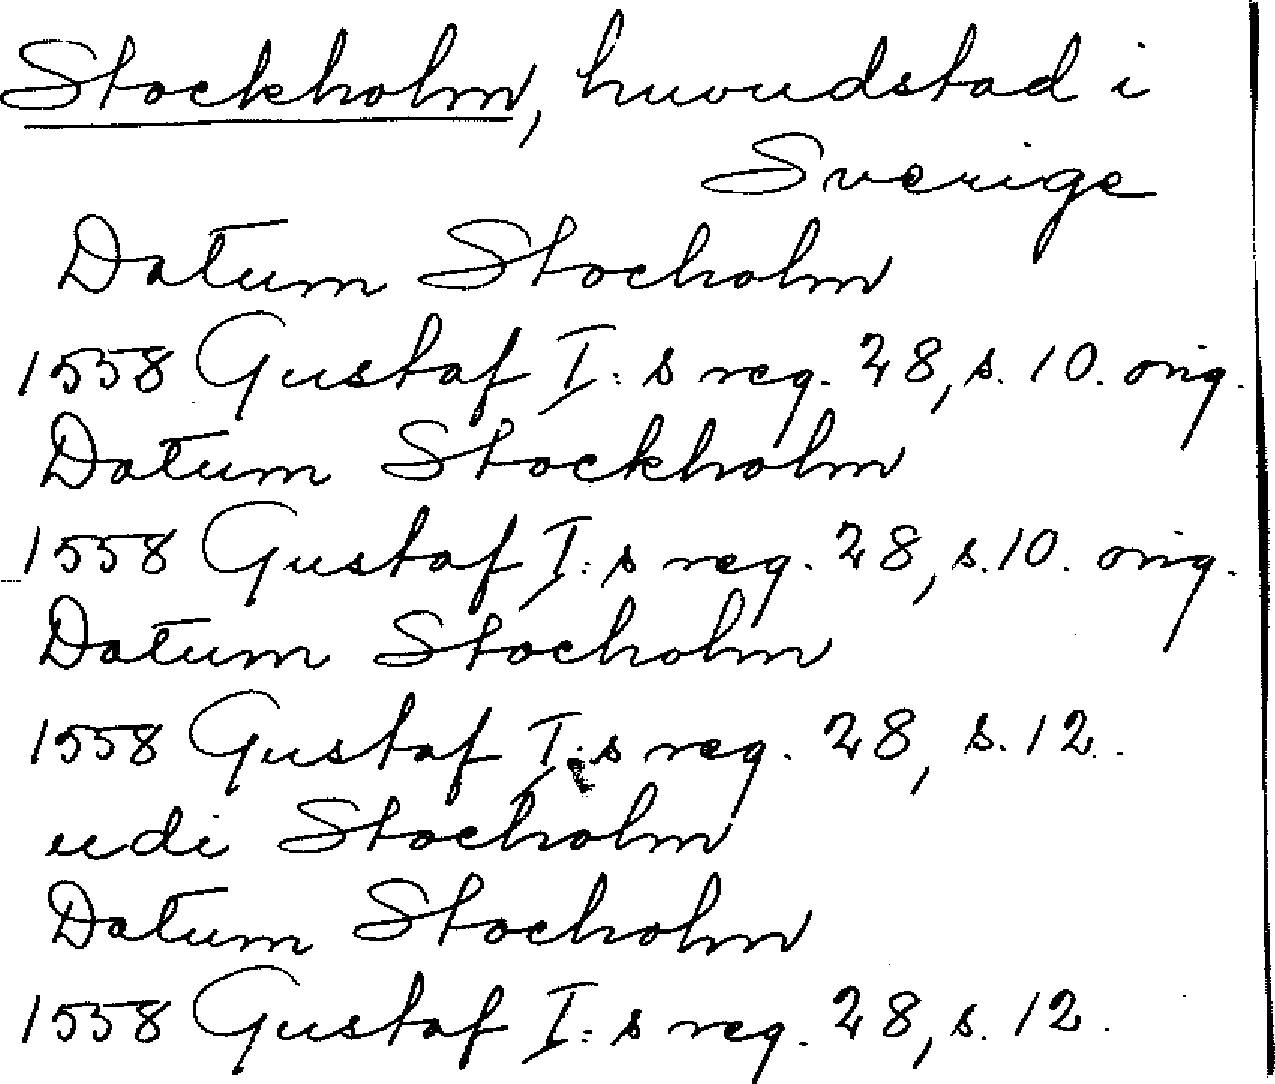 Stockholm, huvudstad i
Sverige
Datum Stocholm
1558 Gustaf I:s reg. 28, s. 10. orig.
Datum Stockholm
1558 Gustaf I:s reg. 28, s. 10. orig.
Datum Stocholm
1558 Gustaf I:s reg. 28, s. 12.
udi Stocholm
Datum Stocholm
1558 Gustaf I:s reg. 28, s. 12.